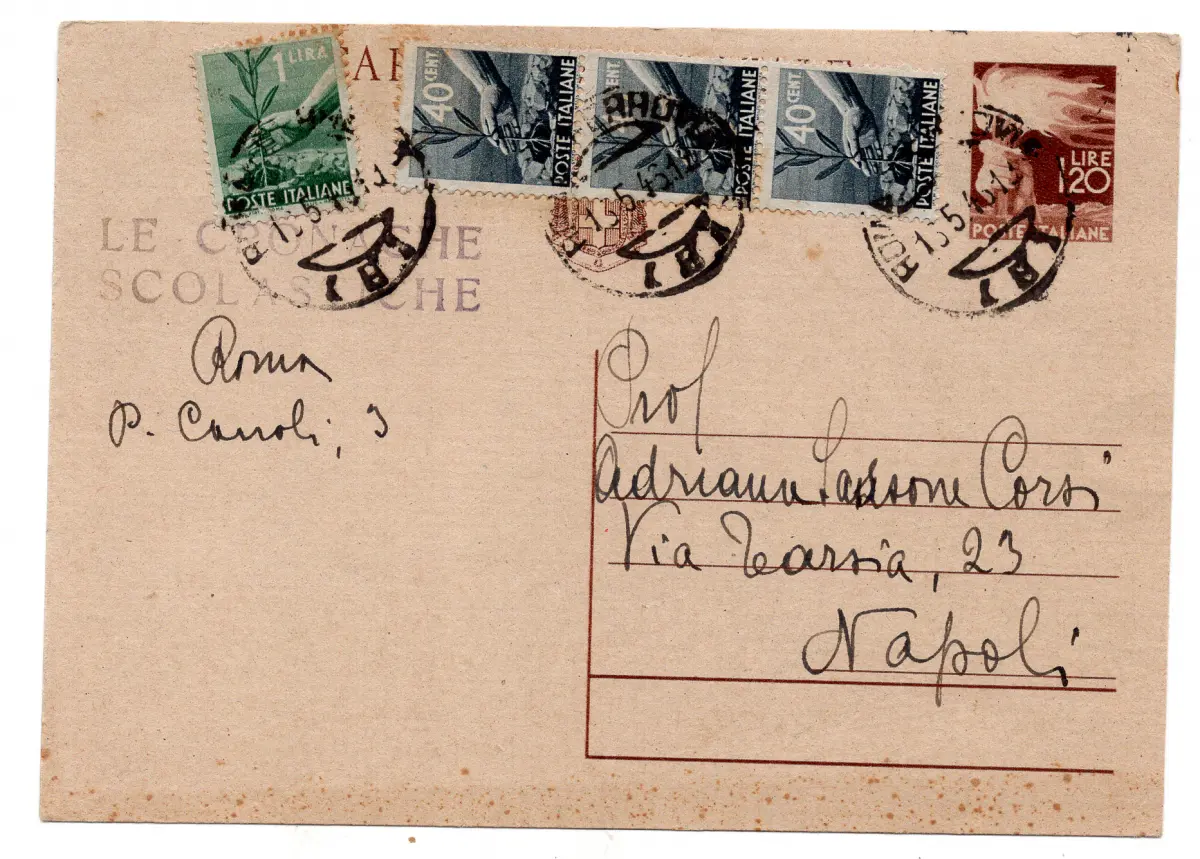 1 LIRA
POSTE ITALIANE
40 CENT.
POSTE ITALIANE
CENT.
POSTE ITALIANE
40 CENT.
POSTE ITALIANE
LIRE
1,20
POSTE ITALIANE
ROMA
LE CRONACHE
SCOLASTICHE
Roma
P. Cairoli, 3
Prof
Adriana Sansone Corsi
Via Tarsia, 23
Napoli